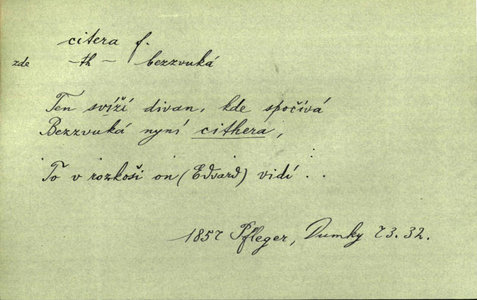 citera f.
zde -th- bezzvuká
Ten svíží divan, kde spočívá
Bezzvuká nyní cithera,
. . .
To v rozkoši on (Edvard) vidí . .
1857 Pfleger, Dumky 23.32.